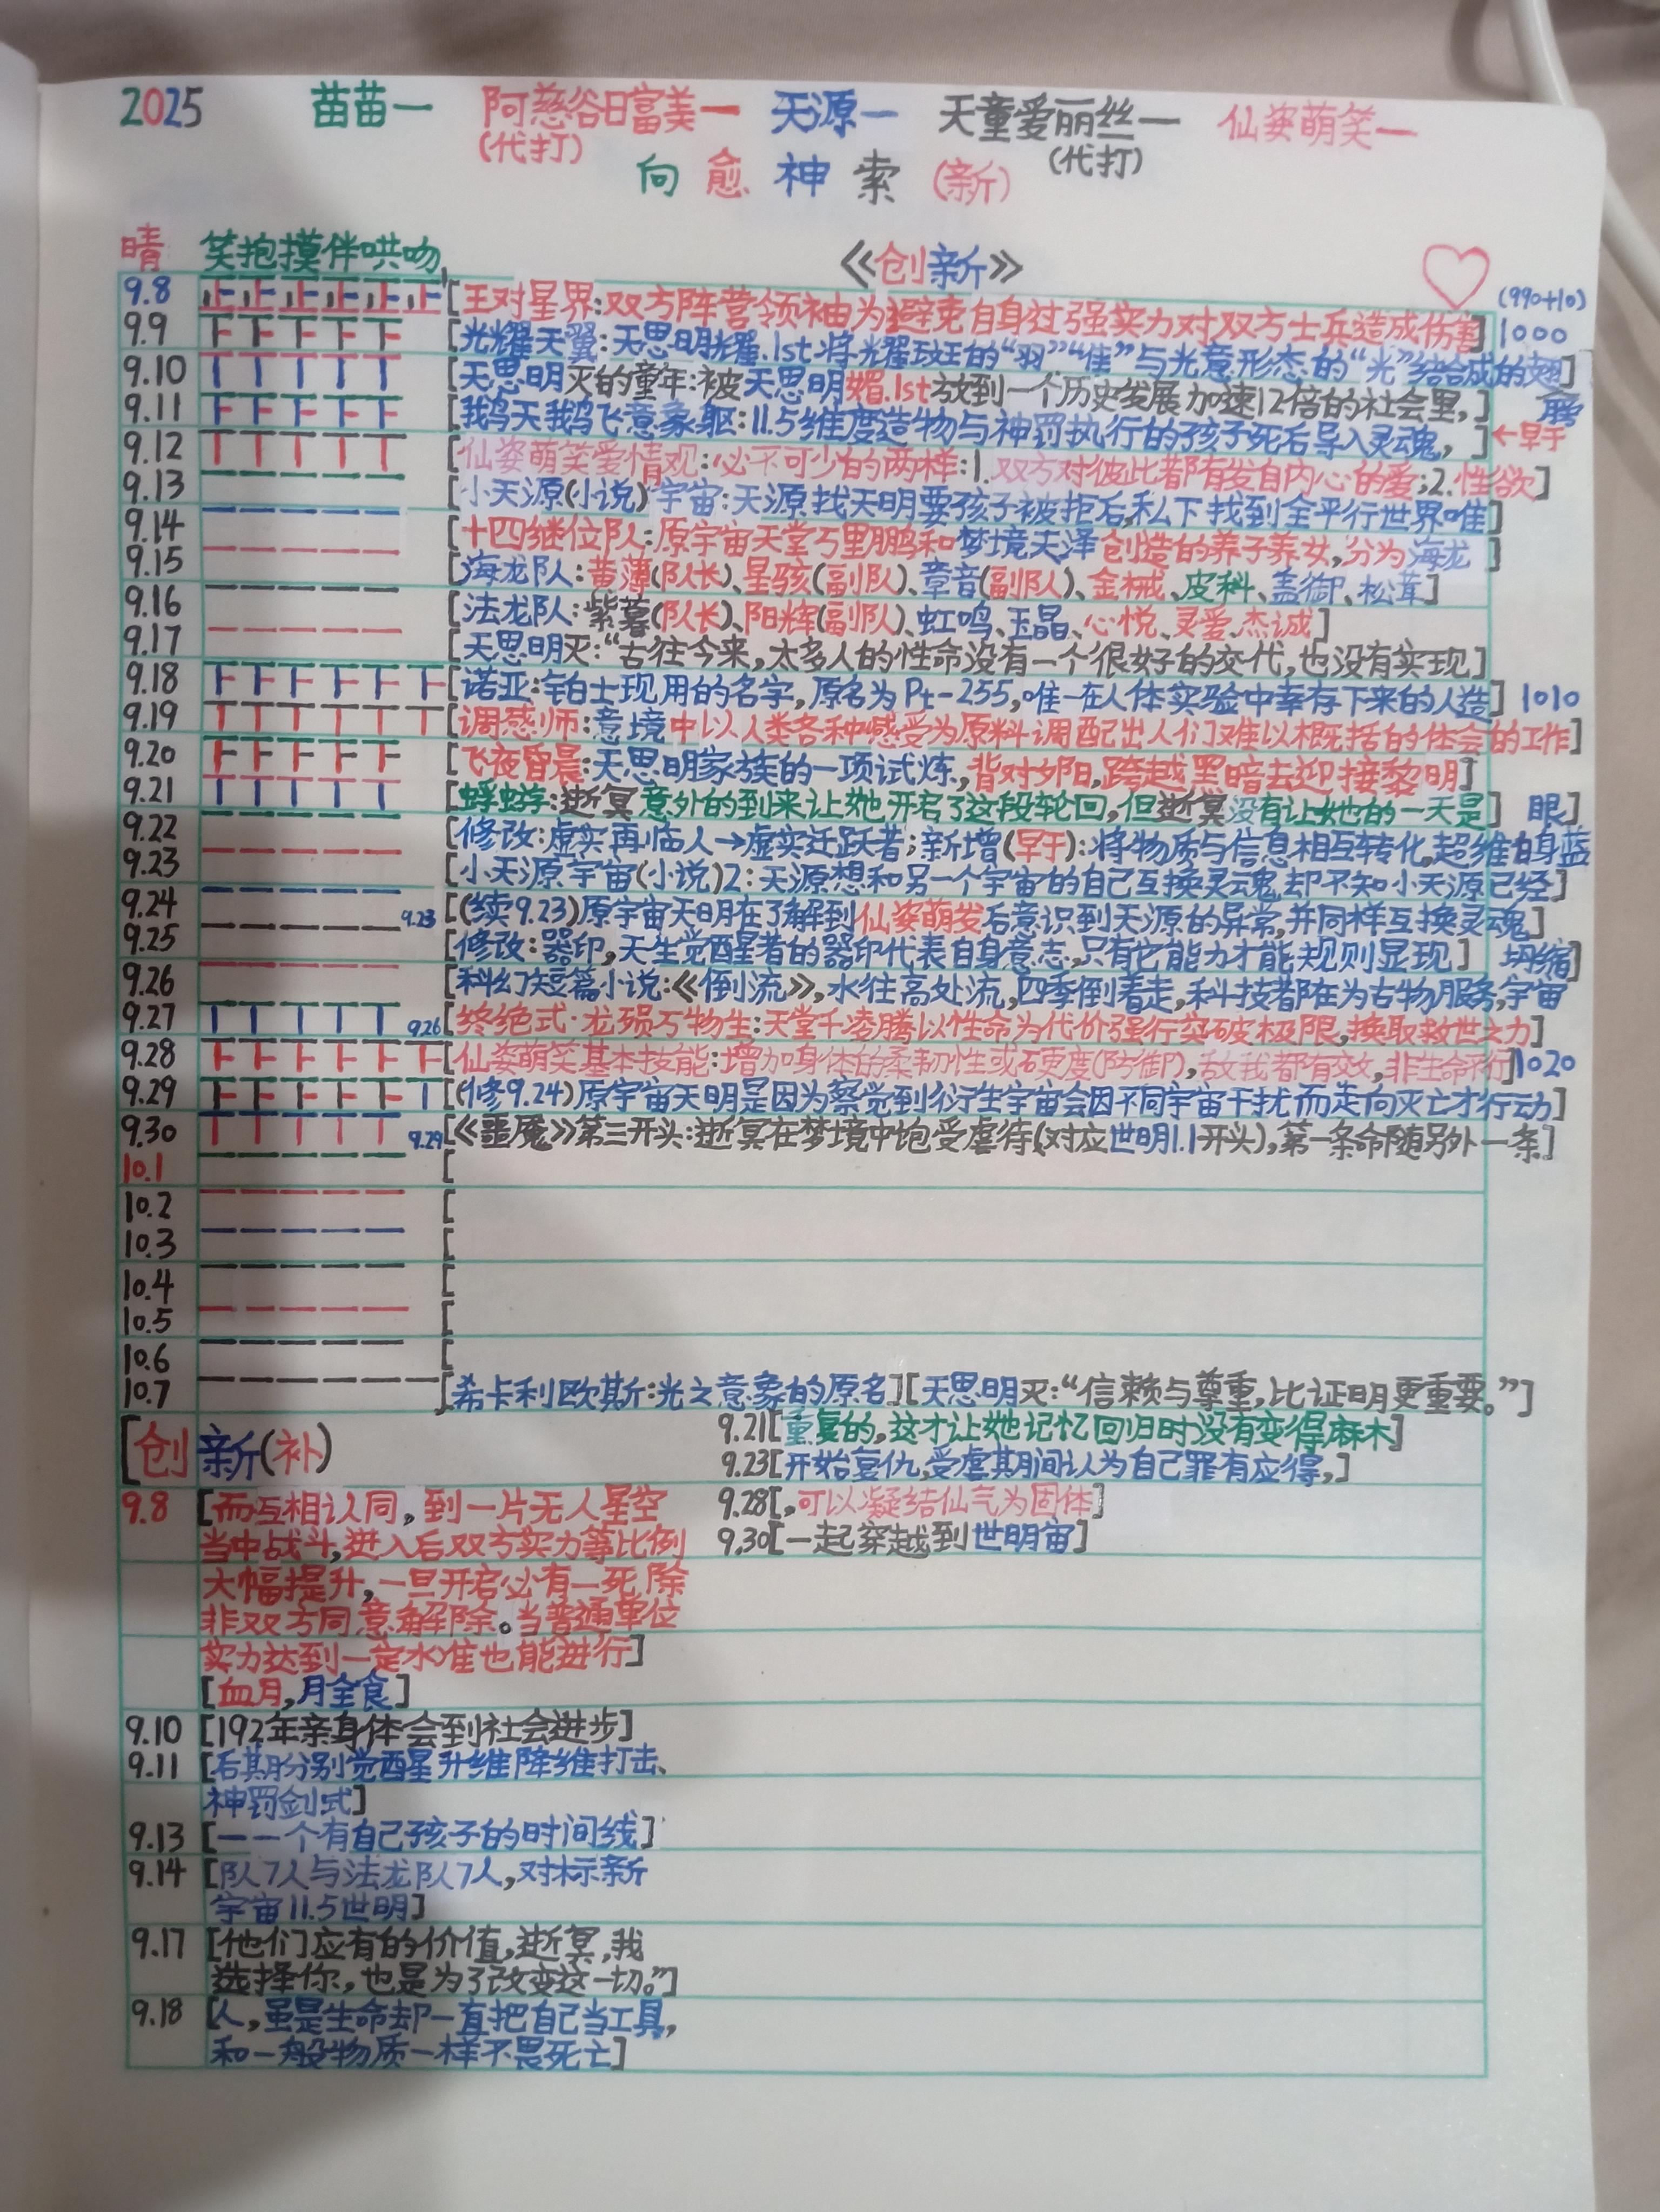 2025 苗苗一 阿慈谷日富美一 天源一 天童爱丽丝一 仙姿萌笑一
(代打) (代打)
向愈神索(新)
晴 笑抱摸伴哄吻 《创新》
(990+10)
9.8 [王对星界:双方阵营领袖为避免自身过强实力对双方士兵造成伤害] 1000
9.9 [光耀天翼:天思明耀.1st将光耀斑的“羽”“隹”与光意形态的“光”结合成的翅]膀
9.10 [天思明灭的童年:被天思明媚.1st放到一个历史发展加速12倍的社会里,]
9.11 [鹅天鹅飞意象躯:11.5维度造物与神罚执行的孩子死后导入灵魂,]←早于
9.12 [仙姿萌笑爱情观:必不可少的两样:1.双方对彼此都有发自内心的爱;2.性欲]
9.13 [小天源(小说)宇宙:天源找天明要孩子被拒后,私下找到全平行世界唯]
9.14 [十四继位队:原宇宙天堂丐里鹏和梦境夫泽创造的养子养女,分为海龙]
9.15 [海龙队:黄薄(队长)、星骇(副队)、章音(副队)、金械、皮科、盖御、松茸]
9.16 [法龙队:紫暮(队长)、阳辉(副队)、虹鸣、玉晶、心悦、灵爱、杰诚]
9.17 [天思明灭:“古往今来,太多人的性命没有一个很好的交代,也没有实现]
9.18 [诺亚:铂士现用的名字,原名为Pt-255,唯一在人体实验中幸存下来的人造] 1010
9.19 [调感师:意境中以人类各种感受为原料调配出人们难以概括的体会的工作]
9.20 [飞夜昏晨:天思明家族的一项试炼,背对夕阳,跨越黑暗去迎接黎明]
9.21 [蜉蝣:逝冥意外的到来让她开启了这段轮回,但逝冥没有让她的一天是] 眼]
9.22 [修改:虚实再临人→虚实迁跃者;新增(早于):将物质与信息相互转化,超维自身蓝
9.23 [小天源宇宙(小说)2:天源想和另一个宇宙的自己互换灵魂,却不知小天源已经]
9.24 9.23 [(续9.23)原宇宙天明在了解到仙姿萌发后意识到天源的异常,并同样互换灵魂]
9.25 [修改:器印,天生觉醒者的器印代表自身意志,只有它能力才能规则显现] 坍缩]
9.26 [科幻短篇小说:《倒流》,水往高处流,四季倒着走,科技都在为古物服务,宇宙
9.27 9.26 [终绝式·龙殒万物生:天堂千凌腾以性命为代价强行突破极限,换取救世之力]
9.28 [仙姿萌笑基本技能:增加身体的柔韧性或硬度(防御),敌我都有效,非生命不行] 1020
9.29 [(修9.24)原宇宙天明是因为察觉到衍生宇宙会因不同宇宙干扰而走向灭亡才行动]
9.30 9.29 [《噩魇》第三开头:逝冥在梦境中饱受虐待(对应世明1.1开头),第一条命随另外一条]
10.1 [
10.2 [
10.3 [
10.4 [
10.5 [
10.6 [
10.7 [希卡利欧斯:光之意象的原名][天思明灭:“信赖与尊重,比证明更重要。”]
[创新(补)
9.21[重复的,这才让她记忆回归时没有变得麻木]
9.23[开始复仇,受虐期间认为自己罪有应得,]
9.28[,可以凝结仙气为固体]
9.30[一起穿越到世明宙]
9.8 [而互相认同,到一片无人星空
当中战斗,进入后双方实力等比例
大幅提升,一旦开启必有一死,除
非双方同意解除。当普通单位
实力达到一定水准也能进行]
[血月,月全食]
9.10 [192年亲身体会到社会进步]
9.11 [后期分别觉醒升维降维打击、
神罚剑式]
9.13 [一一个有自己孩子的时间线]
9.14 [队7人与法龙队7人,对标新
宇宙11.5世明]
9.17 [他们应有的价值,逝冥,我
选择你,也是为了改变这一切。”]
9.18 [人,虽是生命却一直把自己当工具,
和一般物质一样不畏死亡]